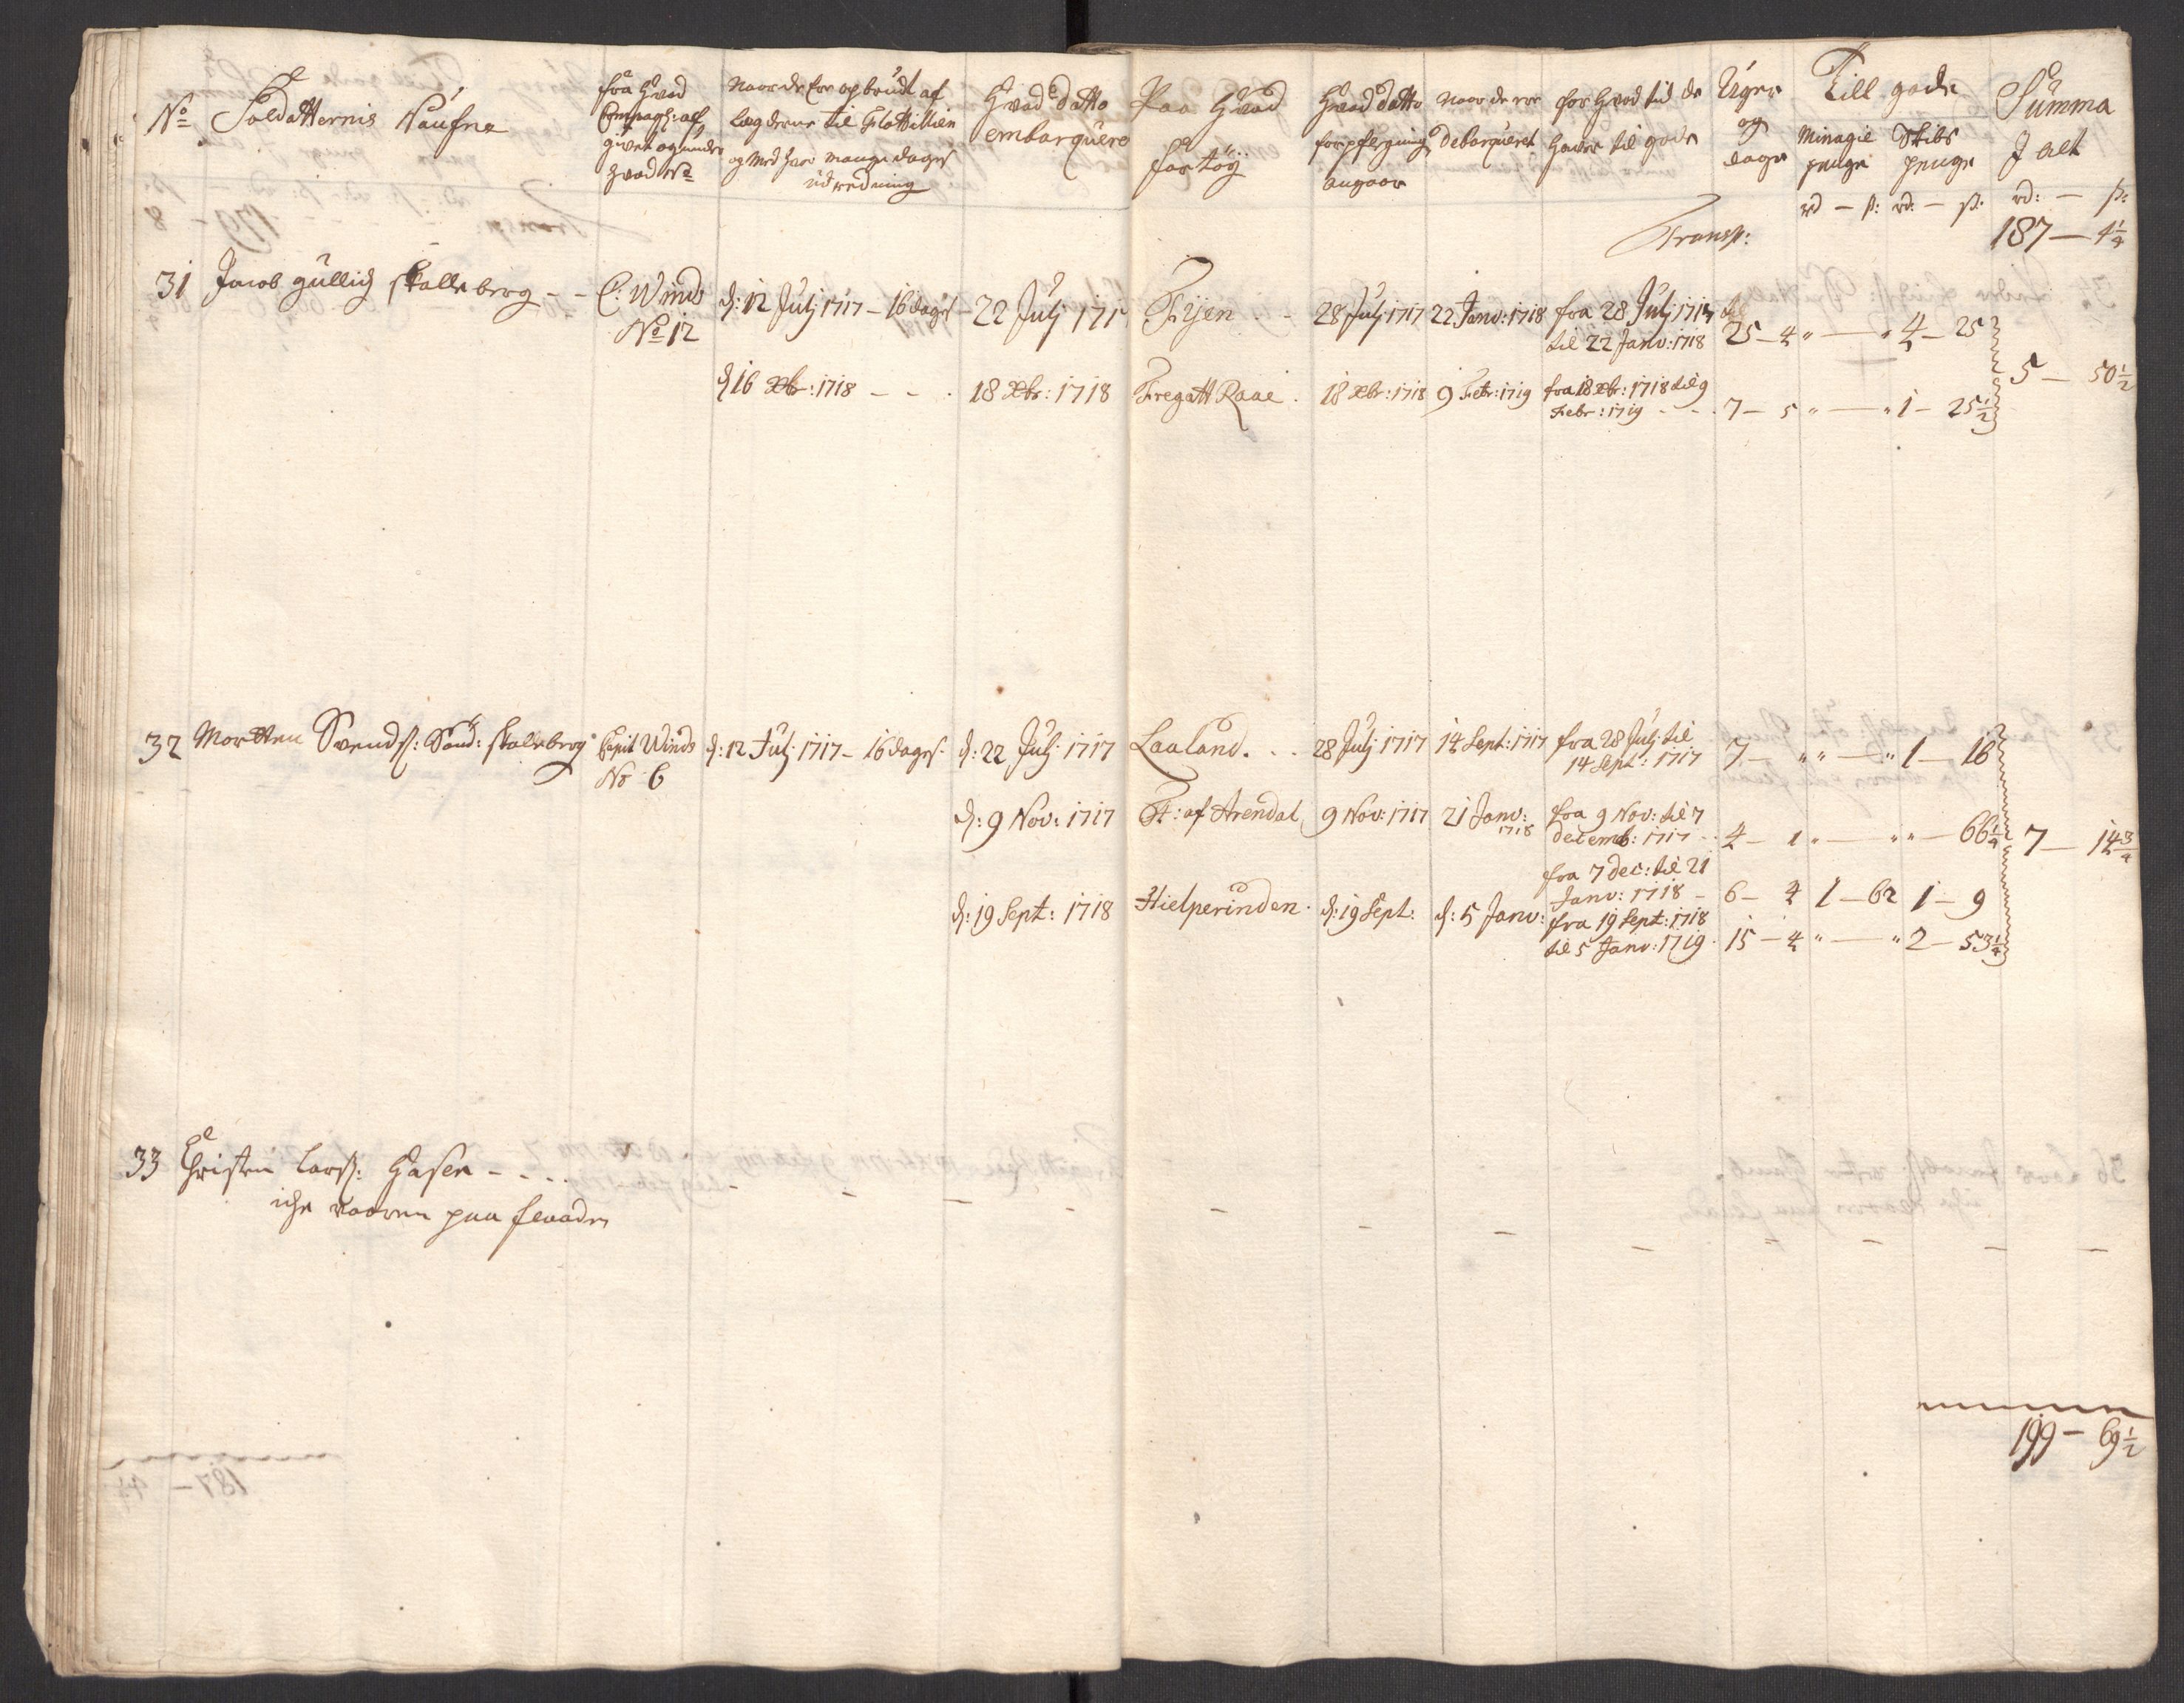 No Soldatternis Naufne
fra Hvad
Compagh: alf
givet og under
hvad No
Naar de Ere op brudt af
Lægderne til Flottillien
og Med hvor mange dages
udredning
Hvad datto
embarquere
Paa Hvad
fartöy
Hvad datto
forpflegning
angaar
Naar de ere
debarqueret
for hvad tid de
haver til gode
Uger
og
dage
Till gode
Minagie
penge
Skibs
penge
rd — s: rd: — s:
Summa
J alt
rd: — s:
Transp: 187 — 4 1/4
31 Jacob gullich skalleberg - - C: Winds
No 12
d: 12 Julj 1717 - 16 dages - 22 Julj 171
Fyen - 28 Julj 1717 22 Janv: 1718 fra 28 Julj 1717
til 22 Janv: 1718 25 - 4 " — " 4 - 25
d 16 xbr: 1718 - - - 18 xbr: 1718 Fregatt Raae . 18 xbr: 1718 9 Febr: 1719 fra 18 xbr: 1718 til 9
Febr: 1719 - - - 7 - 5 " — " 1 - 25 1/2
5 — 50 1/2
32 Mortten Svends: Sand: skalleberg Capit Winds
No 6
d: 12 Julj 1717 - 16 dages. d: 22 Julj 1717 Laaland. . . 28 Julj 1717 14 Sept: 1717 fra 28 Julj til
14 Sept: 1717 7 - " " — " 1 - 16
d: 9 Nov: 1717 St: af Arendal 9 Nov: 1717 21 Janv:
1718
fra 9 Nov: til 7
decemb: 1717 - - 4 - 1 " — " " - 66 1/4
7 — 14 3/4
fra 7 dec: til 21
Janv: 1718 - 6 - 4 1 - 62 1 - 9
d: 19 Sept: 1718 Hielperinden. d: 19 Sept: d: 5 Janv: fra 19 Sept: 1718
til 5 Janv: 1719. 15 - 4 " — " 2 - 53 1/4
33 Christen Lars: Hasen - - . .
iche vaaren paa
199 - 69 1/2